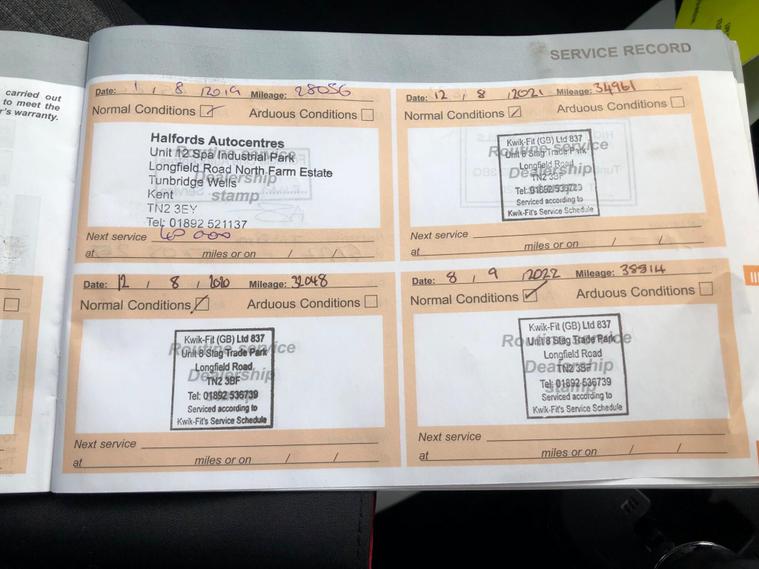 carried out
to meet the
r's warranty.
SERVICE RECORD
Date: 1 / 8 / 2019 Mileage: 28056
Normal Conditions Arduous Conditions
Halfords Autocentres
Unit 12 Spa Industrial Park
Longfield Road North Farm Estate
Tunbridge Wells
Kent
TN2 3EY
Tel: 01892 521137
Dealership
stamp
Next service 40 000
at miles or on / /
Date: 12 / 8 / 2021 Mileage: 34961
Normal Conditions Arduous Conditions
Routine service
Dealership
stamp
Kwik-Fit (GB) Ltd 837
Unit 8 Stag Trade Park
Longfield Road
TN2 3BF
Tel: 01892 536739
Serviced according to
Kwik-Fit's Service Schedule
Next service
at miles or on / /
Date: 12 / 8 / 2020 Mileage: 32048
Normal Conditions Arduous Conditions
Routine service
Dealership
stamp
Kwik-Fit (GB) Ltd 837
Unit 8 Stag Trade Park
Longfield Road
TN2 3BF
Tel: 01892 536739
Serviced according to
Kwik-Fit's Service Schedule
Next service
at miles or on / /
Date: 8 / 9 / 2022 Mileage: 38814
Normal Conditions Arduous Conditions
Routine service
Dealership
stamp
Kwik-Fit (GB) Ltd 837
Unit 8 Stag Trade Park
Longfield Road
TN2 3BF
Tel: 01892 536739
Serviced according to
Kwik-Fit's Service Schedule
Next service
at miles or on / /